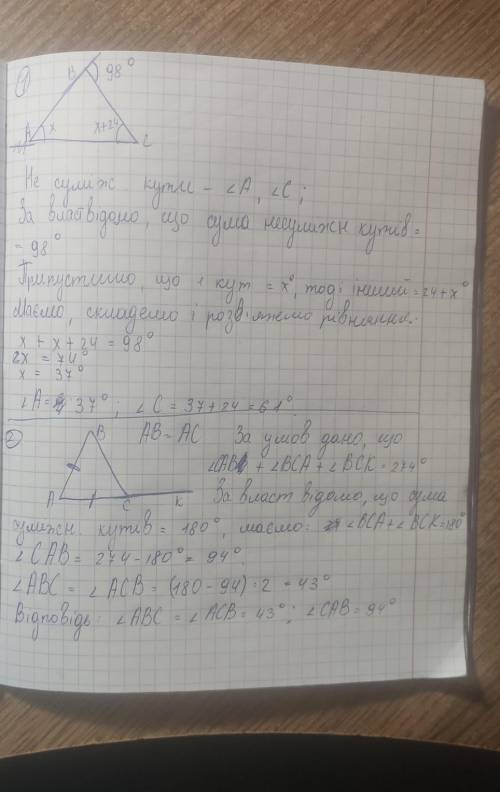 1
B 98°
A x x+24 C
Не суміж кути - ∠A, ∠C;
За власт відомо, що сума несуміжн кутів =
= 98°
Припустимо, що 1 кут = x°, тоді інший = 24+x°
Маємо, складемо і розв'яжемо рівняння:
x + x + 24 = 98°
2x = 74°
x = 37°
∠A = 37°; ∠C = 37+24 = 61°
2
B AB = AC За умов дано, що
∠CAB + ∠BCA + ∠BCK = 274°
A C K За власт відомо, що сума
суміжн. кутів = 180°, маємо: ∠BCA+∠BCK=180°
∠CAB = 274-180° = 94°.
∠ABC = ∠ACB = (180-94):2 = 43°
Відповідь: ∠ABC = ∠ACB = 43°; ∠CAB = 94°